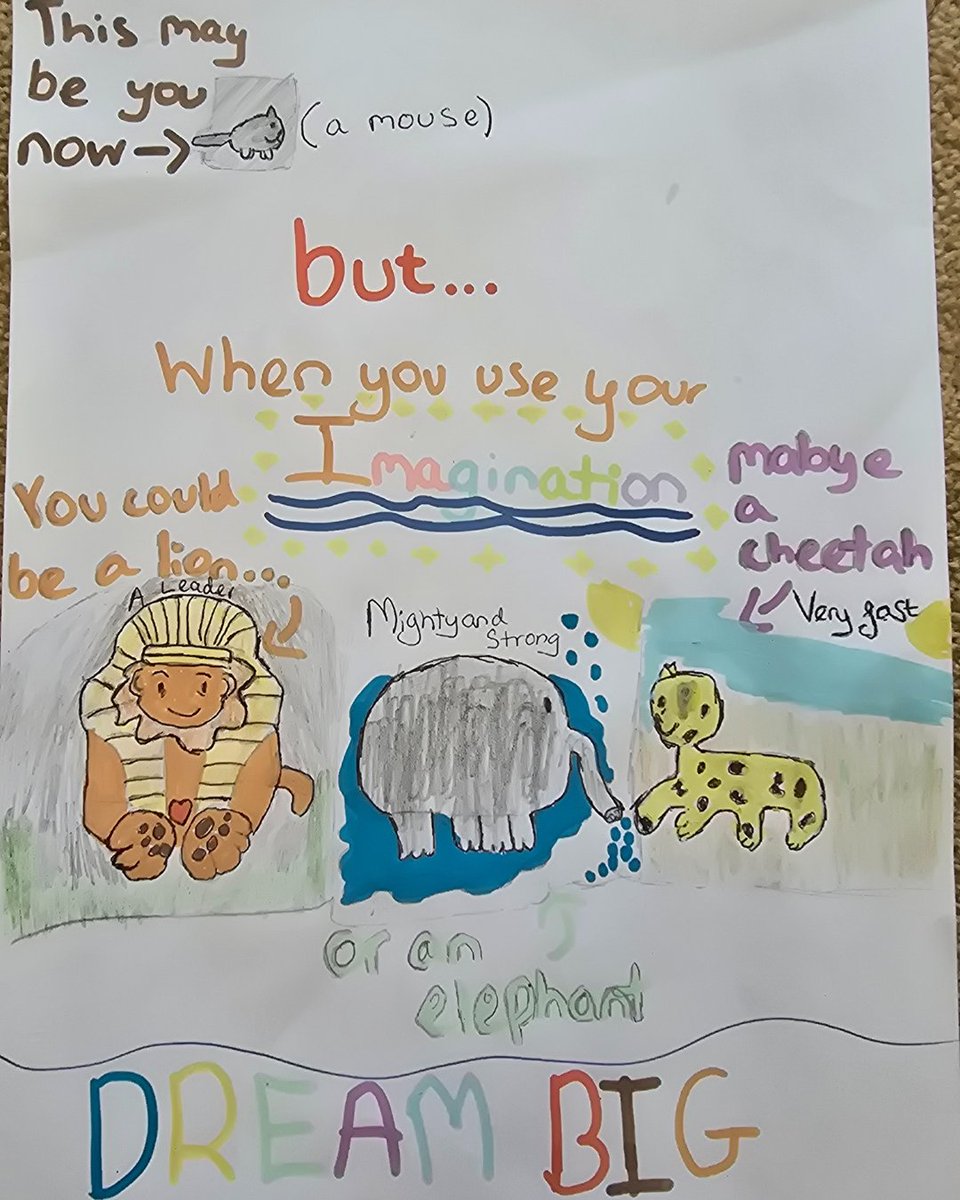 This may
be you
now →
(a mouse)
but...
When you use your
Imagination
You could
be a lion...
A Leader
Mighty and
Strong
mabye
a
cheetah
Very fast
or an
elephant
DREAM BIG